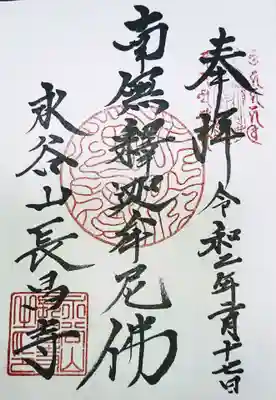 奉拝 令和二年一月十七日
南無釋迦牟尼佛
永谷山長昌寺